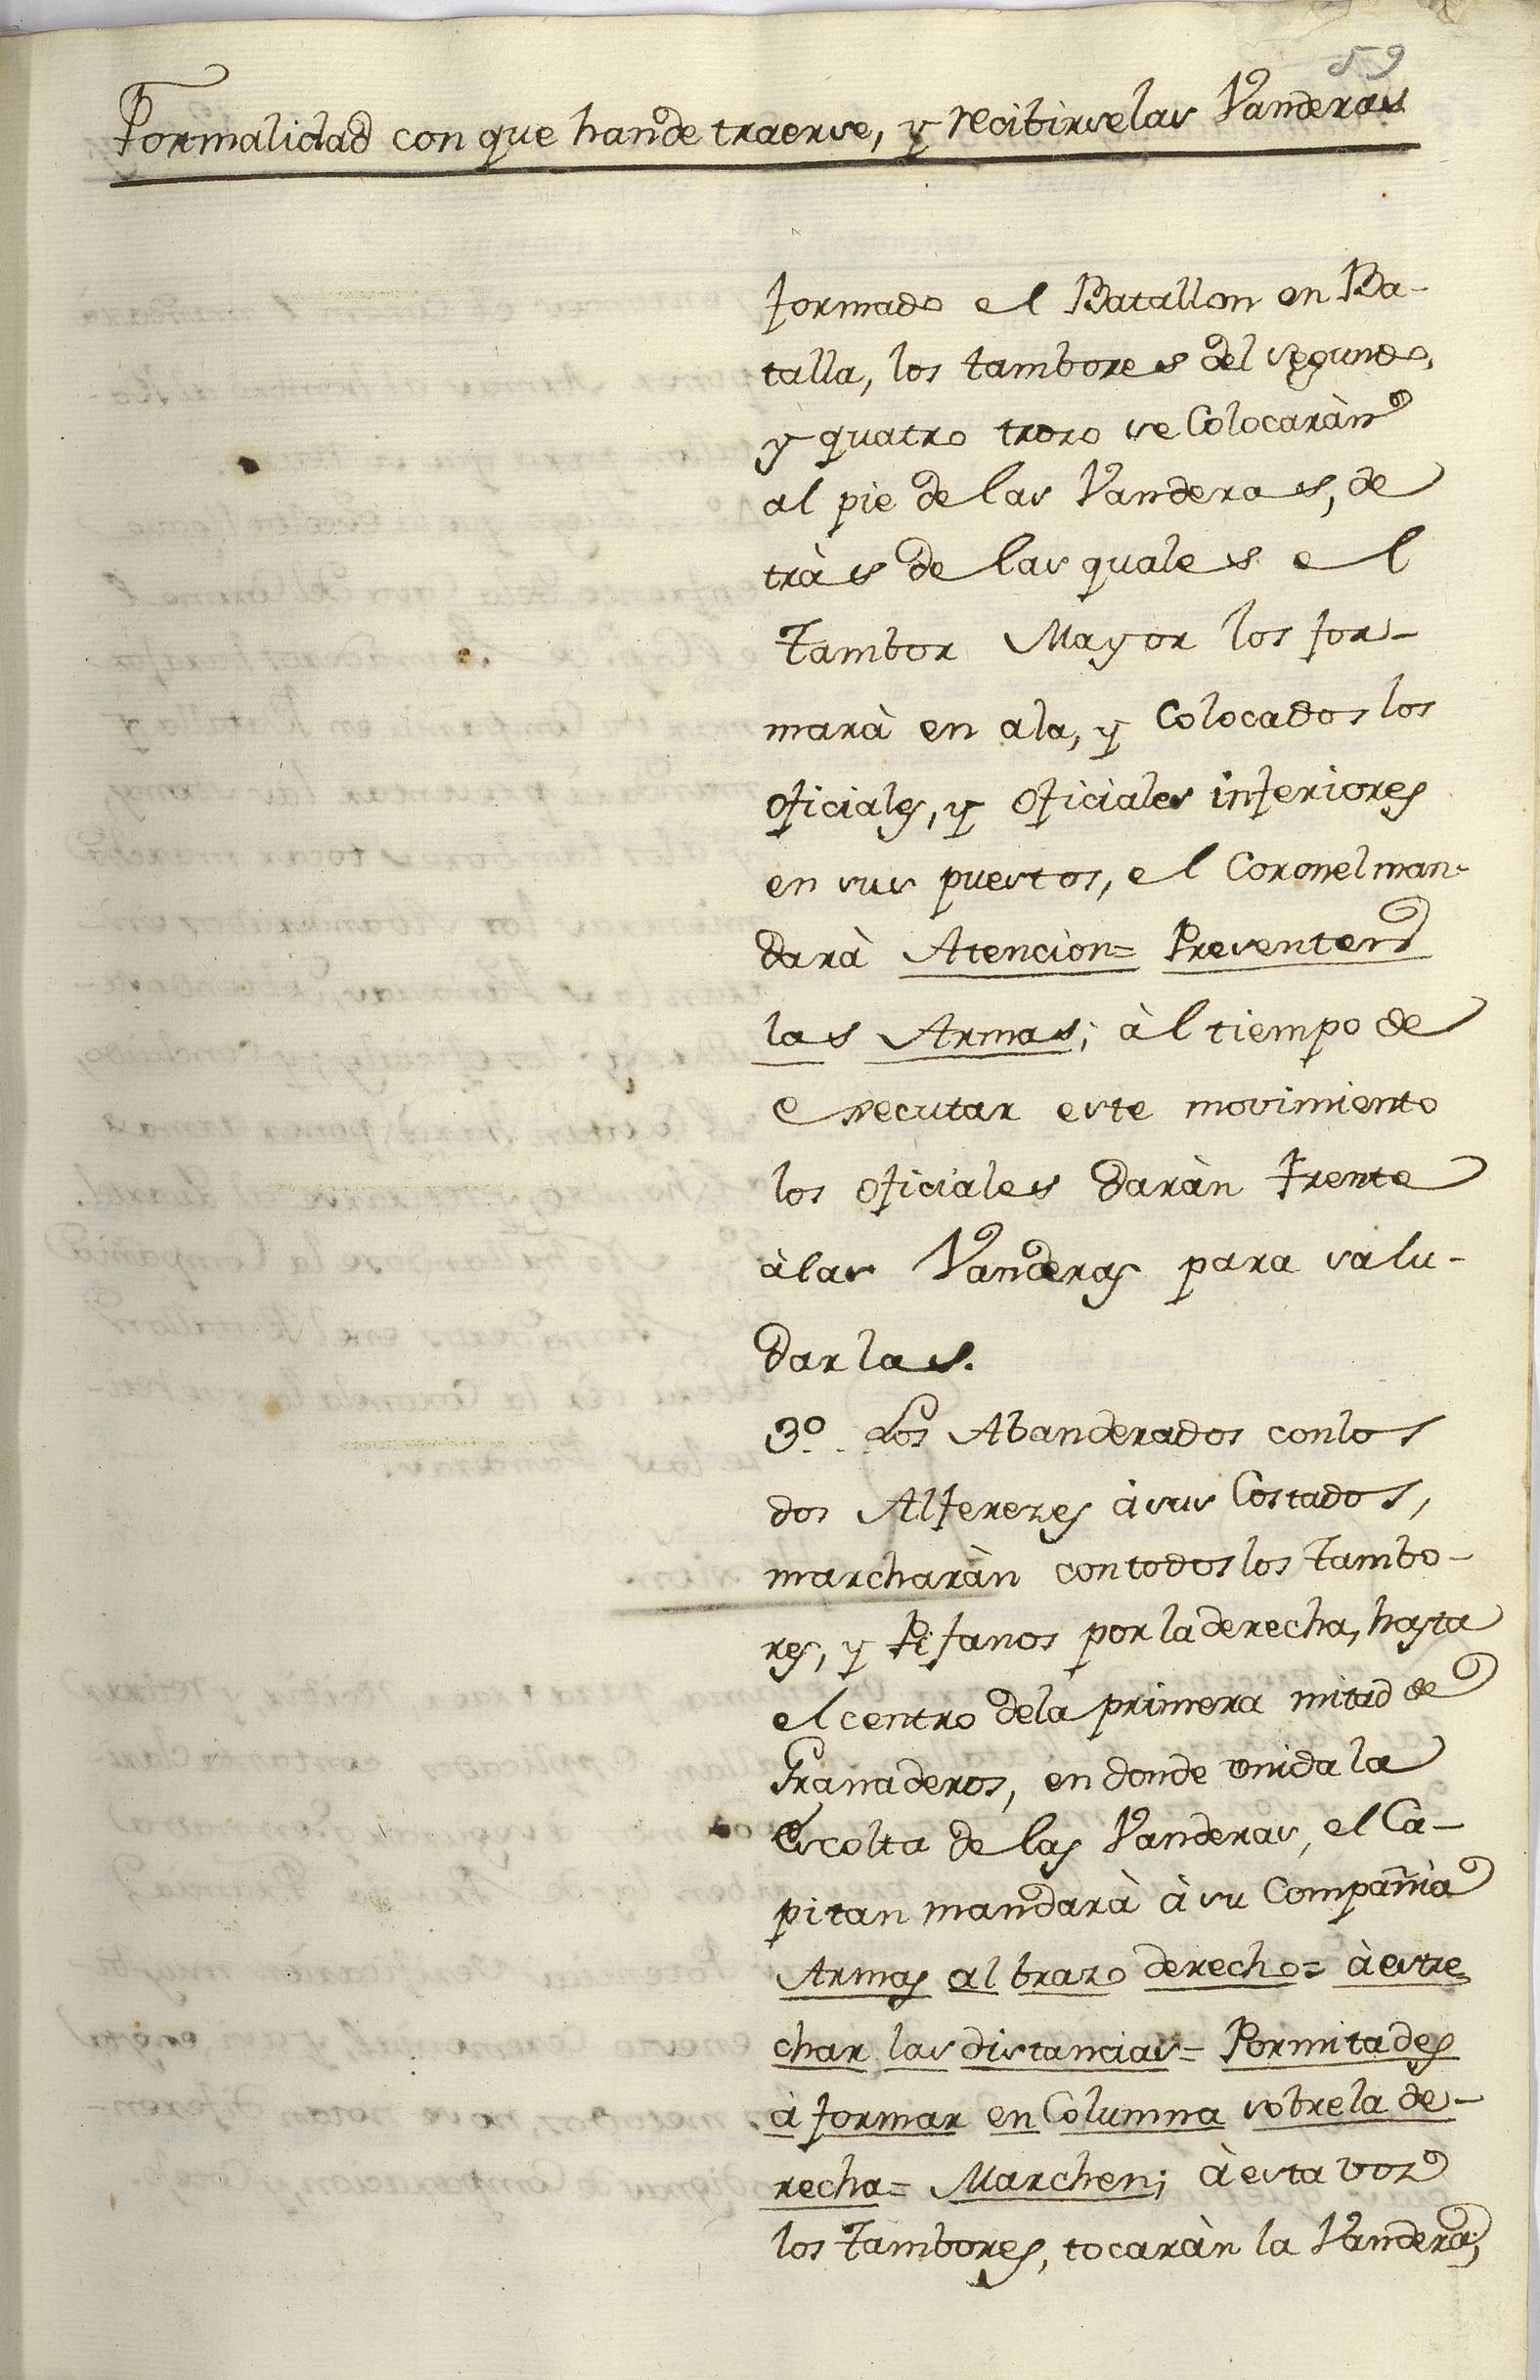 59
Formalidad con que hande traerse, y recibirselas Vanderas
formado el Batallon en Ba-
talla, los tambores del segundo,
y quatro trozo se Colocaràn
al pie de las Vanderas, de
tràs de las quales el
Tambor Mayor los for-
marà en ala, y Colocados los
Oficiales, y Oficiales inferiores
en sus puestos, el Coronel man-
darà Atencion= Presenten
las Armas; àl tiempo de
executar este movimiento
los Oficiales daràn frente
àlas Vanderas para salu-
darlas.
3º. Los Abanderados conlos
dos Alferezes àsus Costados,
marcharàn contodos los Tambo-
res, y Pifanos por la derecha, hasta
el centro dela primera mitad de
Granaderos, en donde unida la
Escolta de las Vanderas, el Ca-
pitan mandarà à su Compañia
Armas al brazo derecho= à estre
char las distancias= Pormitades
à formar en Columna sobre la de-
recha= Marchen; à esta voz
los Tambores, tocaràn la Vandera;